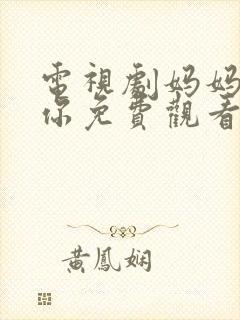 電視劇妈妈
你免費觀看
黃鳳娴